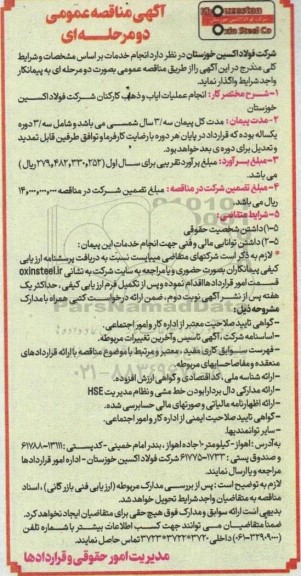 Khouzestan
Oxin Steel Co
آگهی مناقصه عمومی
دو مرحله ای
شرکت فولاد اکسین خوزستان در نظر دارد انجام خدمات بر اساس مشخصات و شرایط
کلی مندرج در این آگهی را از طریق مناقصه عمومی بصورت دو مرحله ای به پیمانکار
واجد شرایط واگذار نماید.
۱-شرح مختصر کار: انجام عملیات ایاب و ذهاب کارکنان شرکت فولاد اکسین
خوزستان
۲-مدت پیمان: مدت کل پیمان سه/۳ سال شمسی می باشد و شامل سه/۳ دوره
یکساله بوده که قرارداد در پایان هر دوره با رضایت کارفرما و توافق طرفین قابل تمدید
و تعدیل برای دوره ی بعد خواهد بود.
۳-مبلغ برآورد: مبلغ برآورد تقریبی برای سال اول (۲۷۹,۴۸۲,۳۳۰,۲۵۲ ریال)
می باشد.
۴-مبلغ تضمین شرکت در مناقصه: مبلغ تضمین شرکت در مناقصه ۱۴,۰۰۰,۰۰۰,۰۰۰
ریال می باشد.
۵-شرایط متقاضی:
۱-۵) داشتن شخصیت حقوقی
۲-۵) داشتن توانایی مالی و فنی جهت انجام خدمات این پیمان:
* لازم به ذکر است شرکتهای متقاضی میبایست نسبت به دریافت پرسشنامه ارزیابی
کیفی پیمانکاران بصورت حضوری و یا مراجعه به سایت شرکت به نشانی oxinsteel.ir
قسمت امور قراردادها اقدام نموده و پس از تکمیل فرم ارزیابی کیفی، حداکثر یک
هفته پس از نشر آگهی نوبت دوم، ضمن ارائه درخواست کتبی همراه با مدارک
مشروحه ذیل:
-گواهی تایید صلاحیت معتبر از اداره کار و امور اجتماعی.
-اساسنامه شرکت، آگهی تاسیس و آخرین تغییرات مربوطه.
-فهرست سوابق کاری مفید، معتبر و مرتبط با موضوع مناقصه با ارائه قراردادهای
منعقده و مفاصاحسابهای مربوطه.
-ارائه شناسه ملی، کد اقتصادی و گواهی ارزش افزوده.
-ارائه مدارکی دال بر دارا بودن خط مشی و نظام مدیریت HSE
-ارائه اظهارنامه مالیاتی و صورتهای مالی حسابرسی شده.
-گواهی تایید صلاحیت ایمنی از اداره کار و امور اجتماعی.
-سایر توانمندیها.
به آدرس: اهواز-کیلومتر ۱۰ جاده اهواز، بندر امام خمینی-کدپستی: ۱۳۱۱۱-۶۱۷۸۸
و صندوق پستی: ۱۷۳۳-۶۱۷۷۵ فولاد اکسین خوزستان-اداره امور قراردادها
مراجعه و یا ارسال نمایند.
لازم به توضیح است: پس از بررسی مدارک مربوطه (ارزیابی فنی بازرگانی)، اسناد
مناقصه به متقاضیان واجد شرایط تحویل خواهد شد.
بدیهی است ارائه سوابق و مدارک فوق هیچ حقی برای متقاضیان ایجاد نخواهد کرد.
ضمنا متقاضیان می توانند جهت کسب اطلاعات بیشتر با شماره تلفن
(۳۲۹۰۹۰۰۰-۰۶۱) داخلی ۳۷۲۰/۳۷۲۲/۳۷۲۳ تماس حاصل نمایند.
مدیریت امور حقوقی و قراردادها